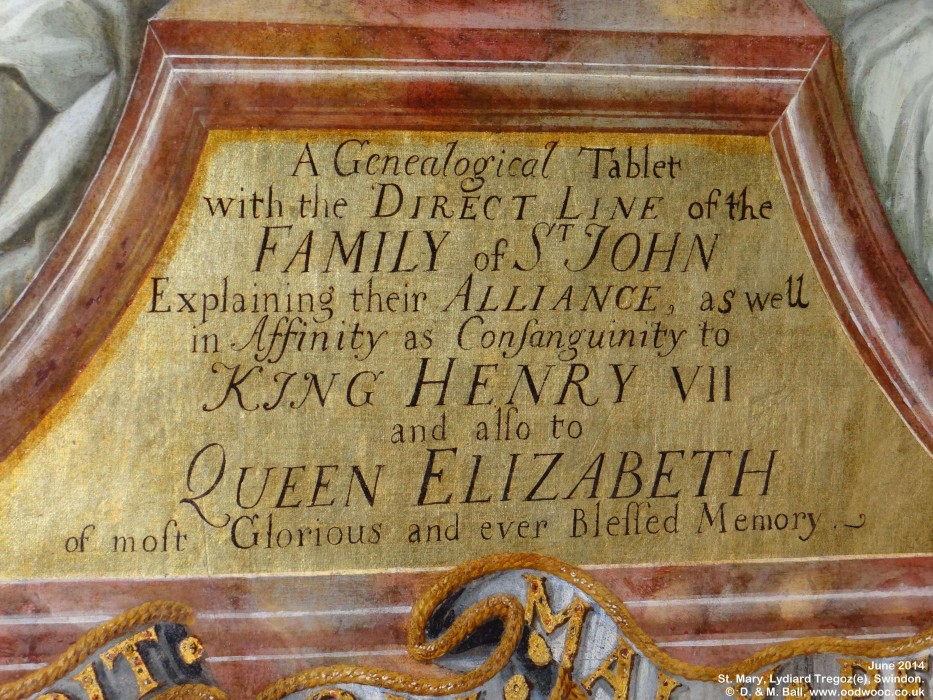 A Genealogical Tablet
with the DIRECT LINE of the
FAMILY of Sᵀ JOHN
Explaining their ALLIANCE, as well
in Affinity as Conſanguinity to
KING HENRY VII
and alſo to
QUEEN ELIZABETH
of moſt Glorious and ever Bleſſed Memory.
IT:
June 2014
St. Mary, Lydiard Tregoz(e), Swindon.
© D. & M. Ball, www.oodwooc.co.uk